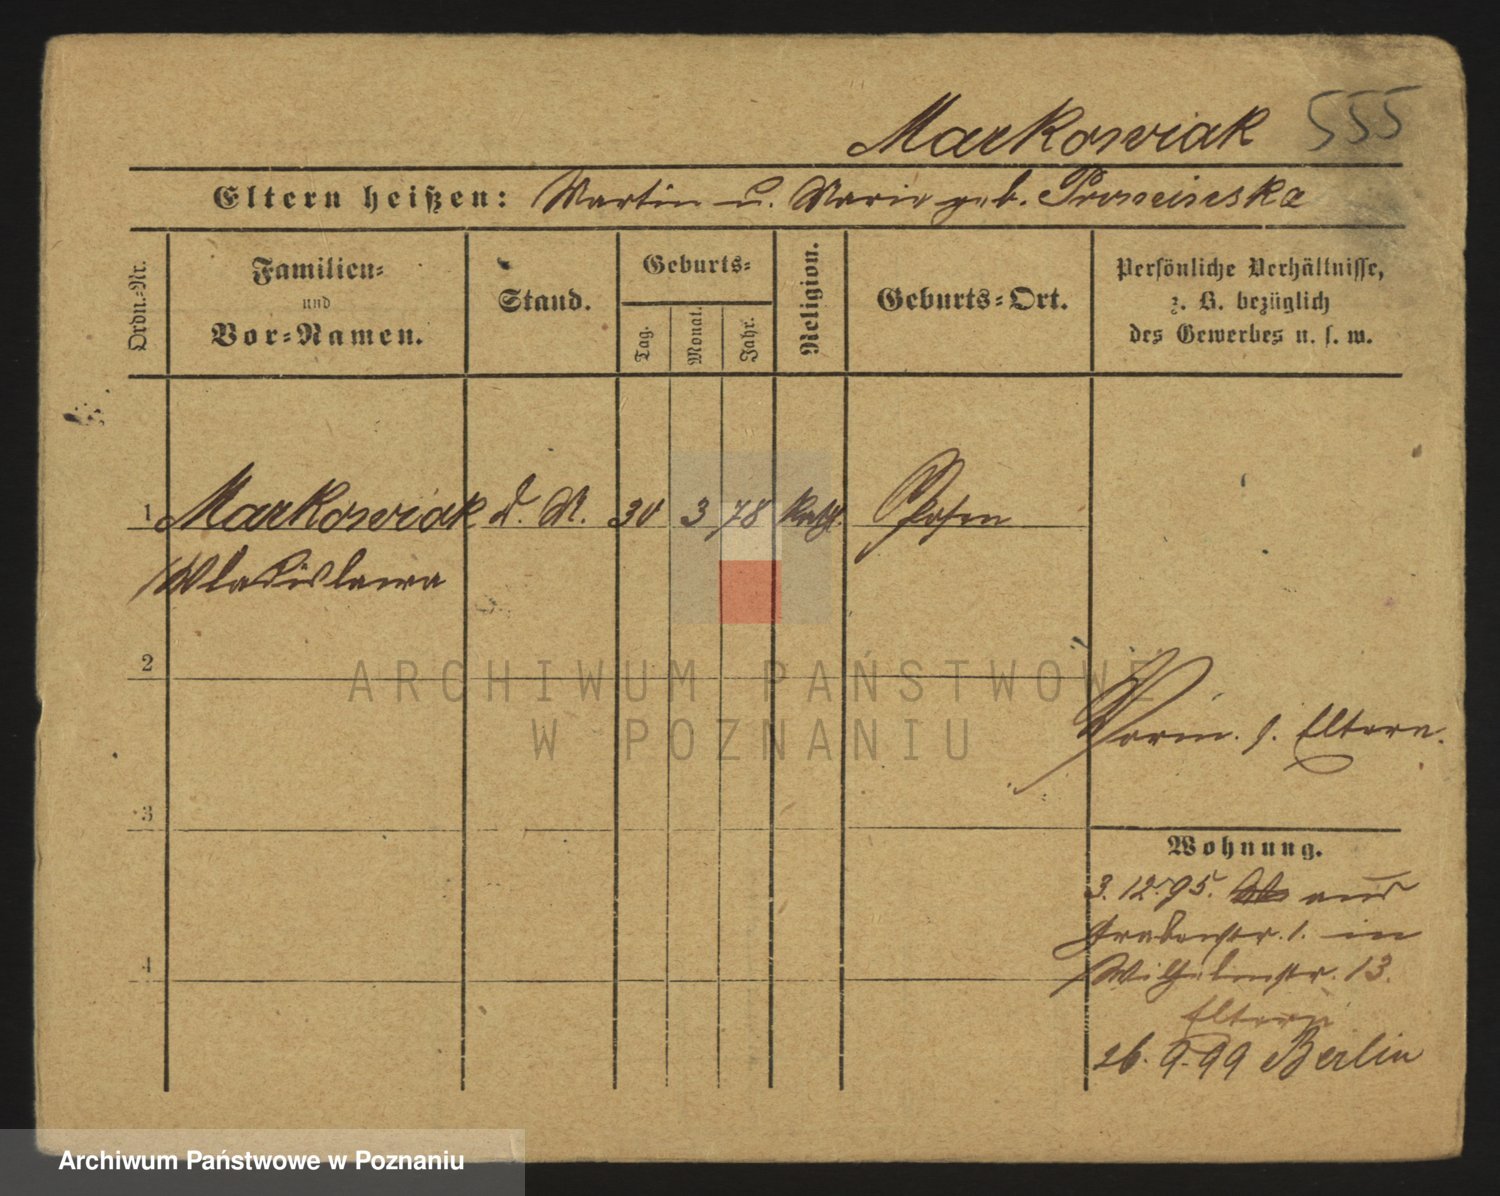 Markowiak 555
Eltern heißen: Martin u. Marie geb.
Ordn.-Nr.
Familien-
und
Vor-Namen.
Stand.
Geburts-
Tag.
Monat.
Jahr.
Religion.
Geburts-Ort.
Persönliche Verhältnisse,
z. B. bezüglich
des Gewerbes u. s. w.
1 Markowiak d. M. 30 3 78 kath. Posen
Wladislawa
2
Vorm. s. Eltern.
3
Wohnung.
3.12.95. aus
Grabenstr. 1. in
4
Wilhelmstr. 13.
Eltern
26. 9. 99 Berlin
ARCHIWUM PAŃSTWOWE
W POZNANIU
Archiwum Państwowe w Poznaniu